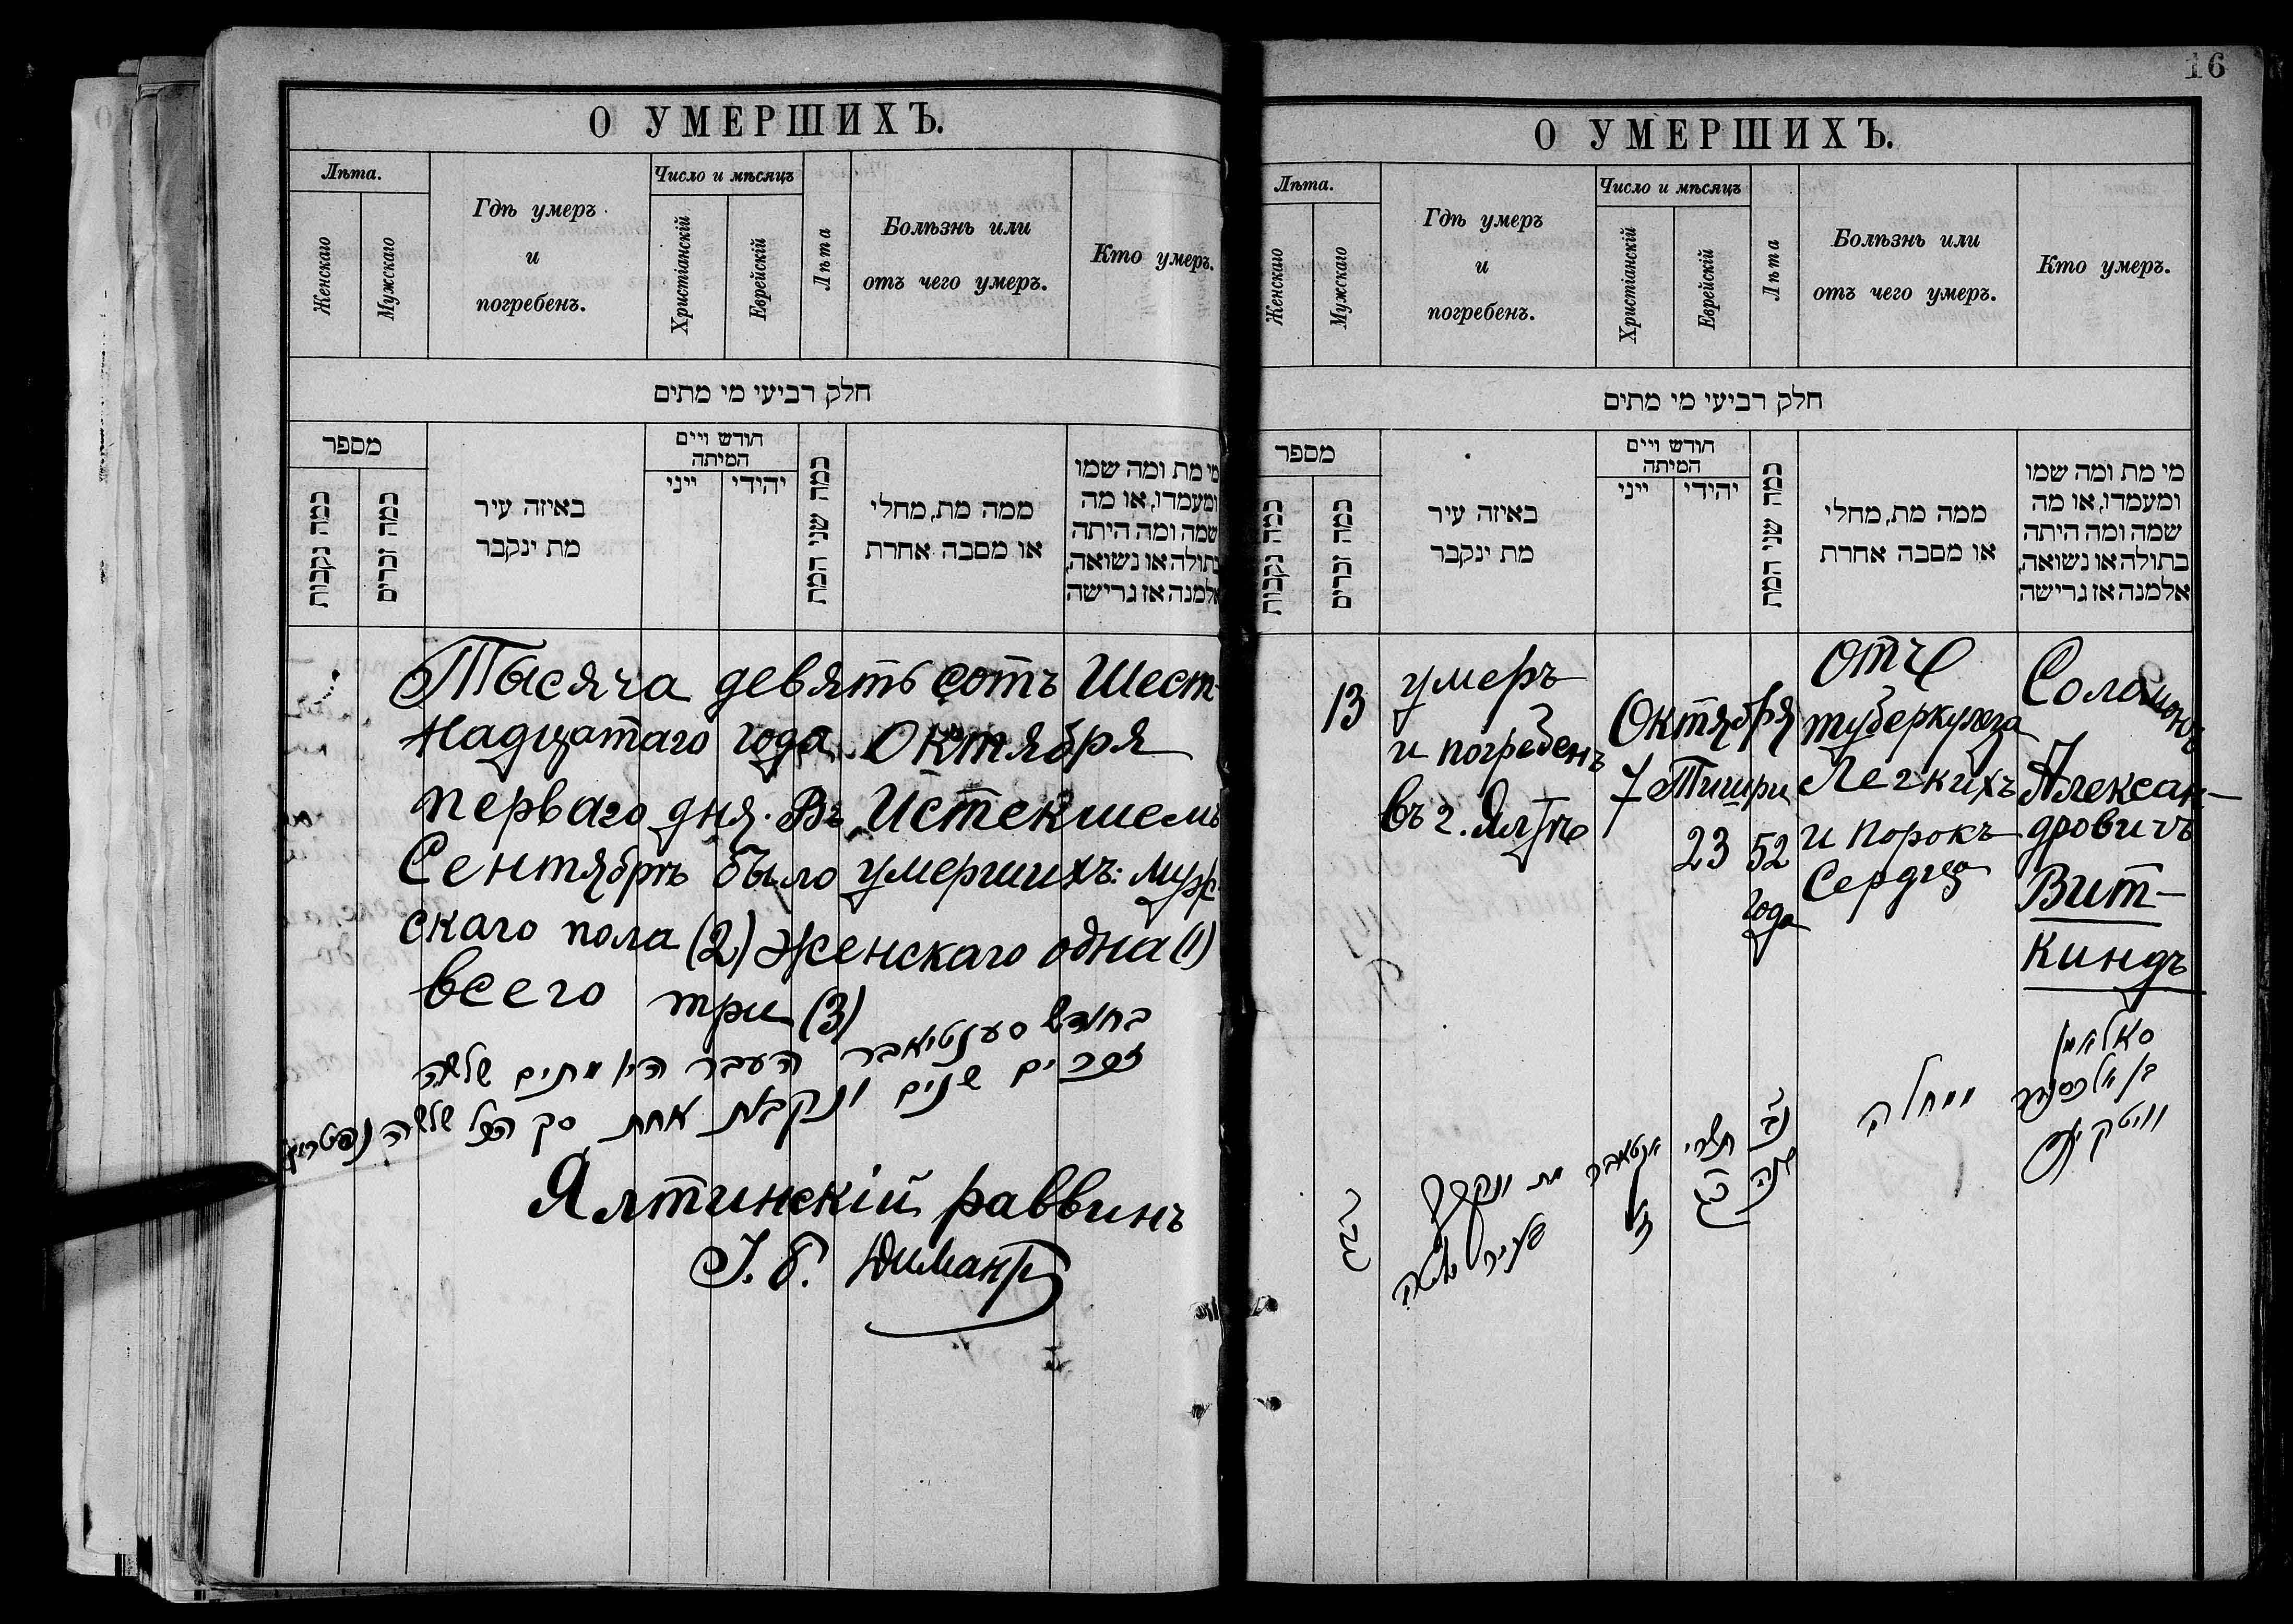 О УМЕРШИХЪ.
Лѣта.
Женскаго
Мужскаго
Гдѣ умеръ
и
погребенъ.
Число и мѣсяцъ
Христіанскій
Еврейскій
Лѣта
Болѣзнь или
отъ чего умеръ.
Кто умеръ.
חלק רביעי מי מתים
מספר
כמה נקבות
כמה זכרים
באיזה עיר
מת ינקבר
חודש ויים
המיתה
ייני
יהודי
כמה שני המת
ממה מת, מחלי
או מסבה אחרת
מי מת ומה שמו
ומעמדו, או מה
שמה ומה היתה
בתולה או נשואה,
אלמנה אז גרישה
Тысяча девятьсотъ Шест-
надцатаго года Октября
перваго дня. Въ Истекшемъ
Сентябрѣ было умершихъ: Муж-
скаго пола (2) Женскаго одна (1)
всего три (3)
בחודש סענטיאבר העבר היו מתים שלשה
זכרים שנים ונקבות אחת סך הכל שלשה
Ялтинскій раввинъ
16
О УМЕРШИХЪ.
Лѣта.
Женскаго
Мужскаго
Гдѣ умеръ
и
погребенъ.
Число и мѣсяцъ
Христіанскій
Еврейскій
Лѣта
Болѣзнь или
отъ чего умеръ.
Кто умеръ.
חלק רביעי מי מתים
מספר
כמה נקבות
כמה זכרים
באיזה עיר
מת ינקבר
חודש ויים
המיתה
ייני
יהודי
כמה שני המת
ממה מת, מחלי
או מסבה אחרת
מי מת ומה שמו
ומעמדו, או מה
שמה ומה היתה
בתולה או נשואה,
אלמנה אז גרישה
13
умеръ
и погребенъ
въ г. Ялтѣ
Октября
7
Тишри
23
52
года
отъ
туберкулеза
Легкихъ
и порокъ
Сердца
Соломонъ
Алексан-
дровичъ
Вит-
киндъ
מת ונקבר
בעיר יאלטה
7
תשרי
כג
נב
שנה
מחלה
סאלאמון
בן אלכסנדר
וויטקינד